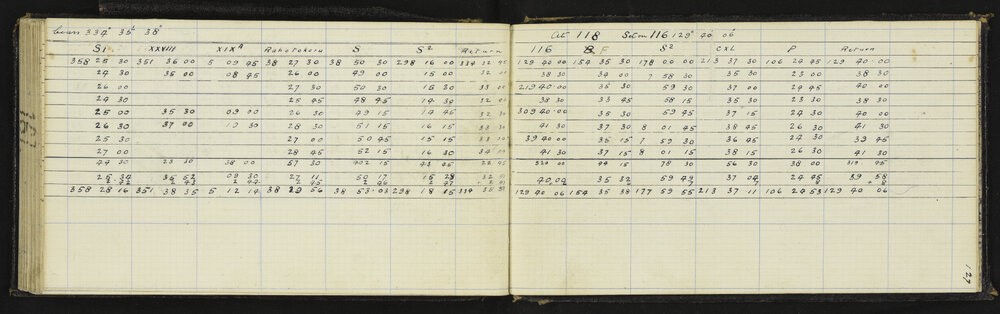 334° 35' 38"
S1 XXVIII XIXA Rahotokora S S2 Return
358 25 30 351 36 00 5 09 45 38 27 30 38 50 30 298 16 00 334 32 45
24 30 35 00 08 45 26 00 49 00 15 00 32 00
26 00 27 30 50 30 15 30 33 00
24 30 25 45 48 45 14 30 32 00
25 00 35 30 09 00 26 30 49 15 14 45 32 30
26 30 37 00 10 30 28 30 51 15 16 15 33 30
25 30 27 00 50 45 15 15 33 00
27 00 28 45 52 15 16 30 34 00
44 30 23 30 38 00 57 30 402 15 43 45 22 45
25 34 35 52 09 30 27 11 50 17 15 28 32 51
2 42 2 43 2 44 2 45 2 46 2 47
358 28 16 351 38 35 5 12 14 38 29 56 38 53 03 298 18 15 334 35 38
At 118 Set on 116 129° 40' 06"
116 F S2 CXL P Return
129 40 00 154 35 30 178 00 00 213 37 30 106 24 45 129 40 00
38 30 34 00 7 58 30 35 30 23 00 38 30
219 40 00 35 30 59 30 37 00 24 45 40 00
38 30 33 45 58 15 35 30 23 30 38 30
309 40 00 35 30 59 45 37 15 24 30 40 00
41 30 37 30 8 01 45 38 45 26 30 41 30
39 40 00 35 15 7 59 30 36 45 24 30 39 45
41 30 37 15 8 01 15 38 15 26 30 41 30
320 00 44 15 78 30 56 30 38 00 319 45
40 00 35 32 59 49 37 04 24 45 39 58
129 40 06 154 35 38 177 59 55 213 37 11 106 24 53 129 40 06
127